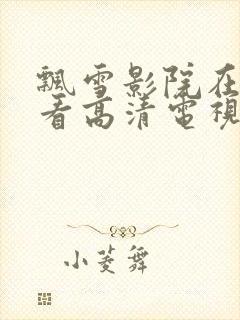 飄雪影院在
看高清電視
小菱舞